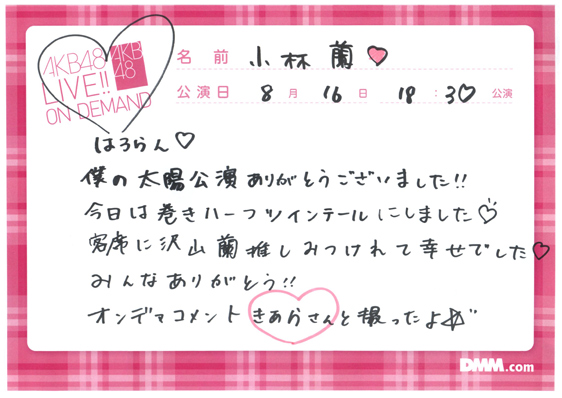 AKB48
LIVE!!
ON DEMAND
AKB
48
名前 小林 蘭♡
公演日 8月 16日 18:30 公演
はろらん♡
僕の太陽公演ありがとうございました!!
今日は巻きハーフツインテールにしました♡
客席に沢山蘭推しみつけれて幸せでした♡
みんなありがとう!!
オンデマコメントきあらさんと撮ったよ
DMM.com